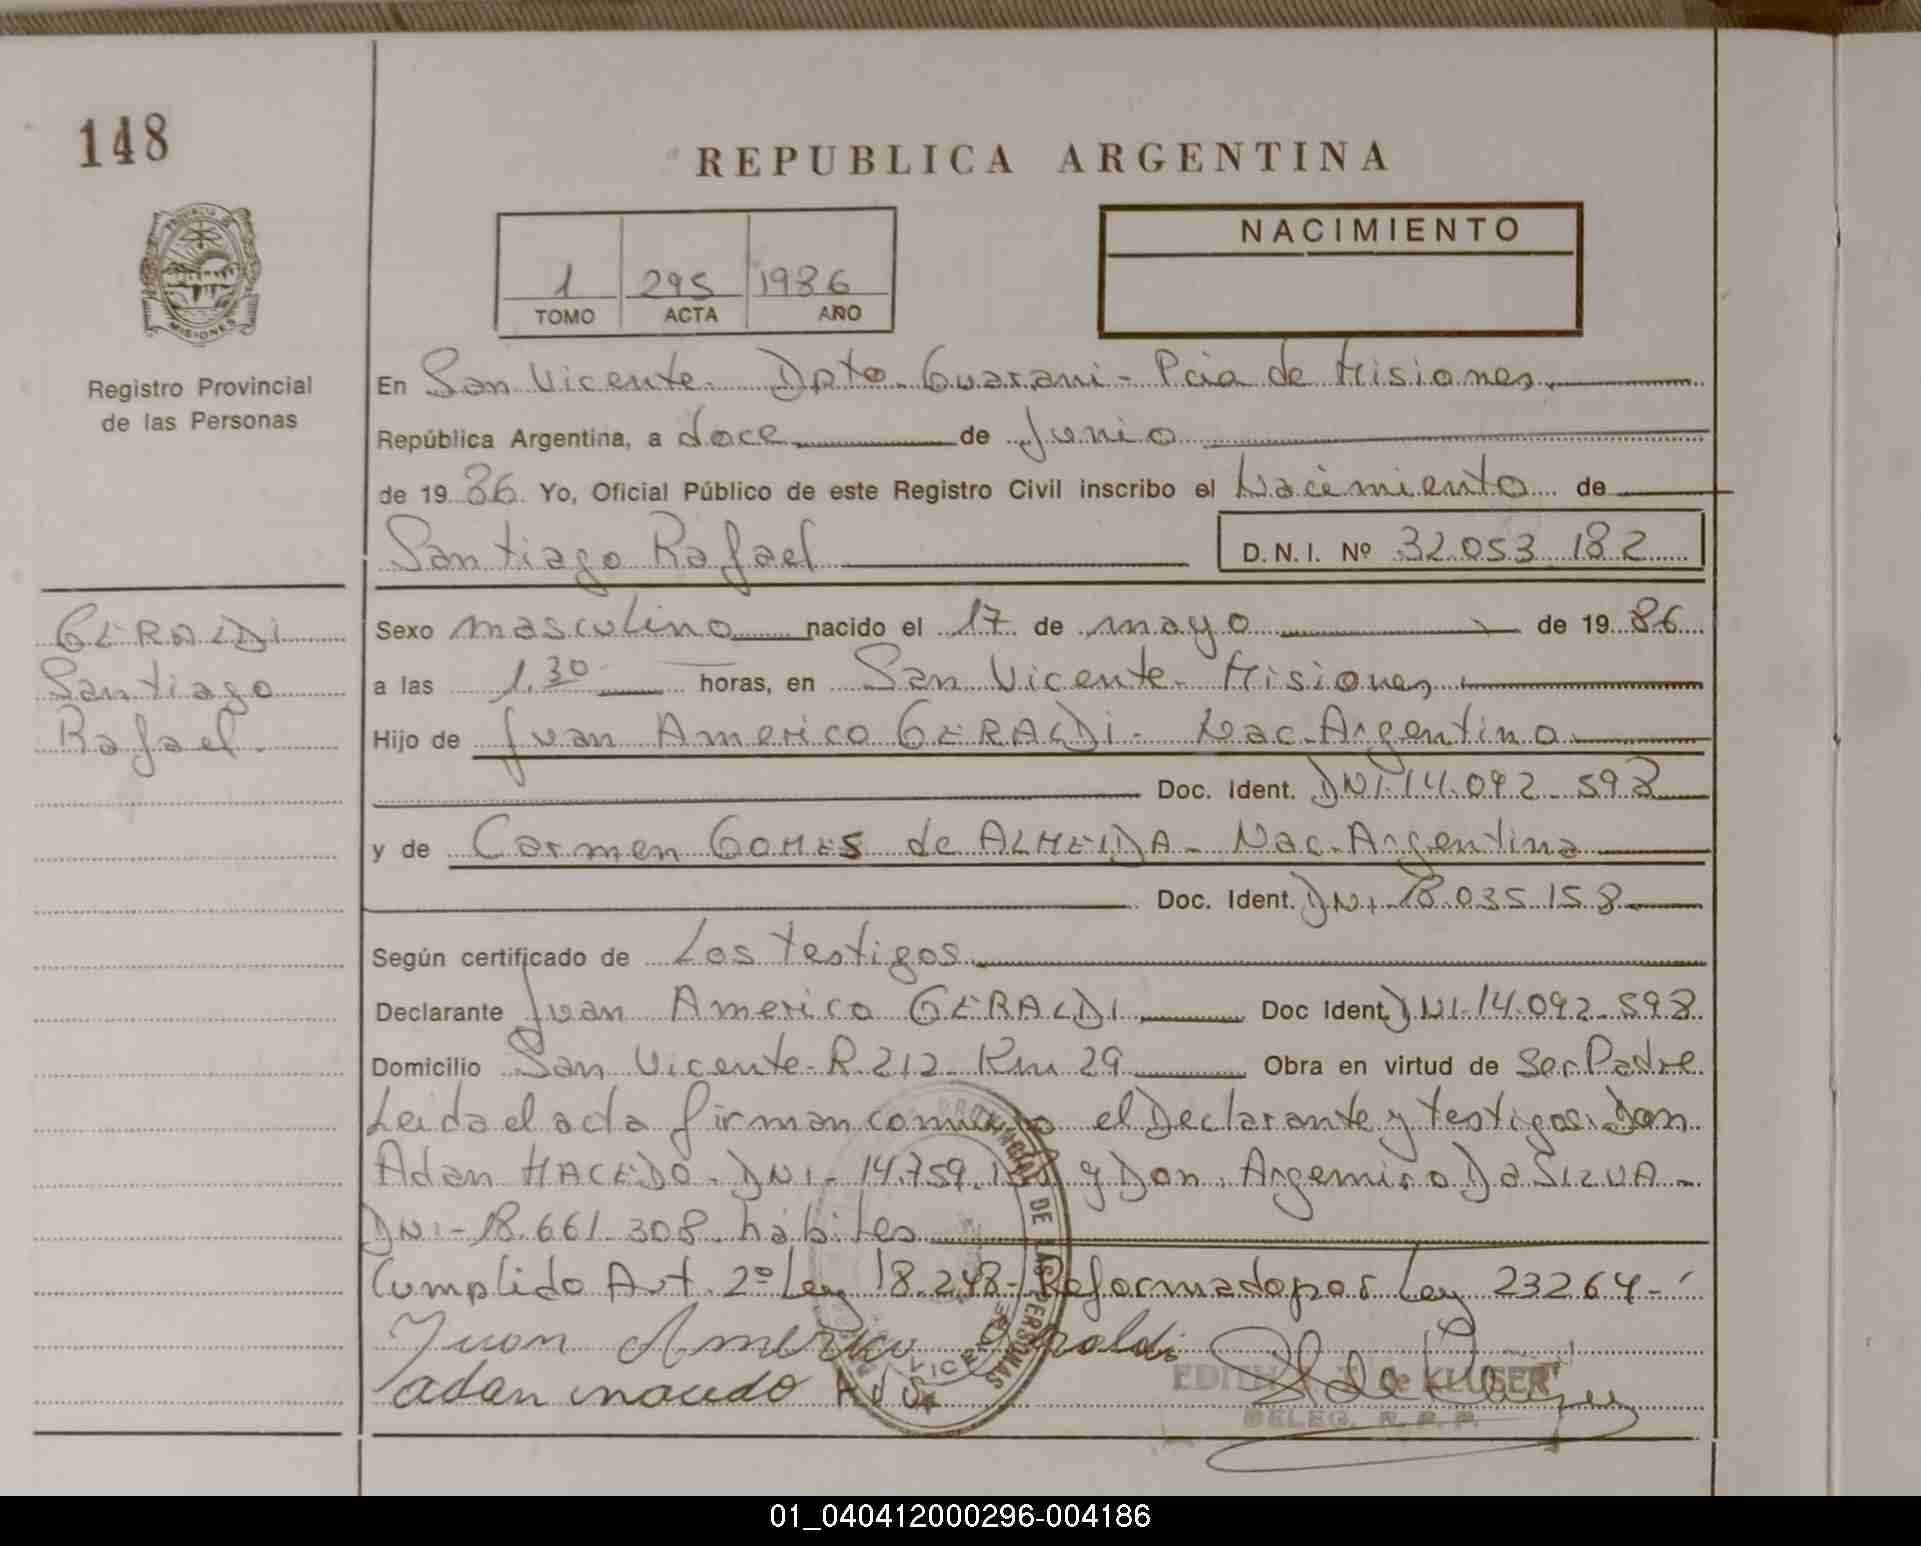 148
REPUBLICA ARGENTINA
PROVINCIA DE
MISIONES
Registro Provincial
de las Personas
1 295 1986
TOMO ACTA AÑO
NACIMIENTO
En San Vicente. Dpto. Guarani - Pcia de Misiones.
República Argentina, a doce de Junio
de 1986. Yo, Oficial Público de este Registro Civil inscribo el Nacimiento de
Santiago Rafael D.N.I. Nº 32.053.182
GERALDI
Santiago
Rafael.
Sexo masculino nacido el 17 de mayo de 1986
a las 1.30 horas, en San Vicente - Misiones
Hijo de Juan Americo GERALDI - Nac. Argentino
Doc. Ident. DNI. 14.092.598
y de Carmen GOMES de ALMEIDA - Nac. Argentina
Doc. Ident. DNI. 18.035.158
Según certificado de Los testigos
Declarante Juan Americo GERALDI Doc Ident. DNI. 14.092.598
Domicilio San Vicente - R. 212 - Km 29 Obra en virtud de Ser Padre
Leida el acta firman conmigo el Declarante y testigos: Don
Adan MACEDO - DNI - 14.759. y Don. Argemiro Da SILVA -
DNI - 18.661.308. hábiles
Cumplido Art. 2º Ley 18.248 - Reformado por Ley 23264 -
Juan Americo Geraldi
adan macedo ADS
PROVINCIAL DE LAS PERSONAS
EDITH de KLUSER
DELEG. R. P. P.
01_040412000296-004186